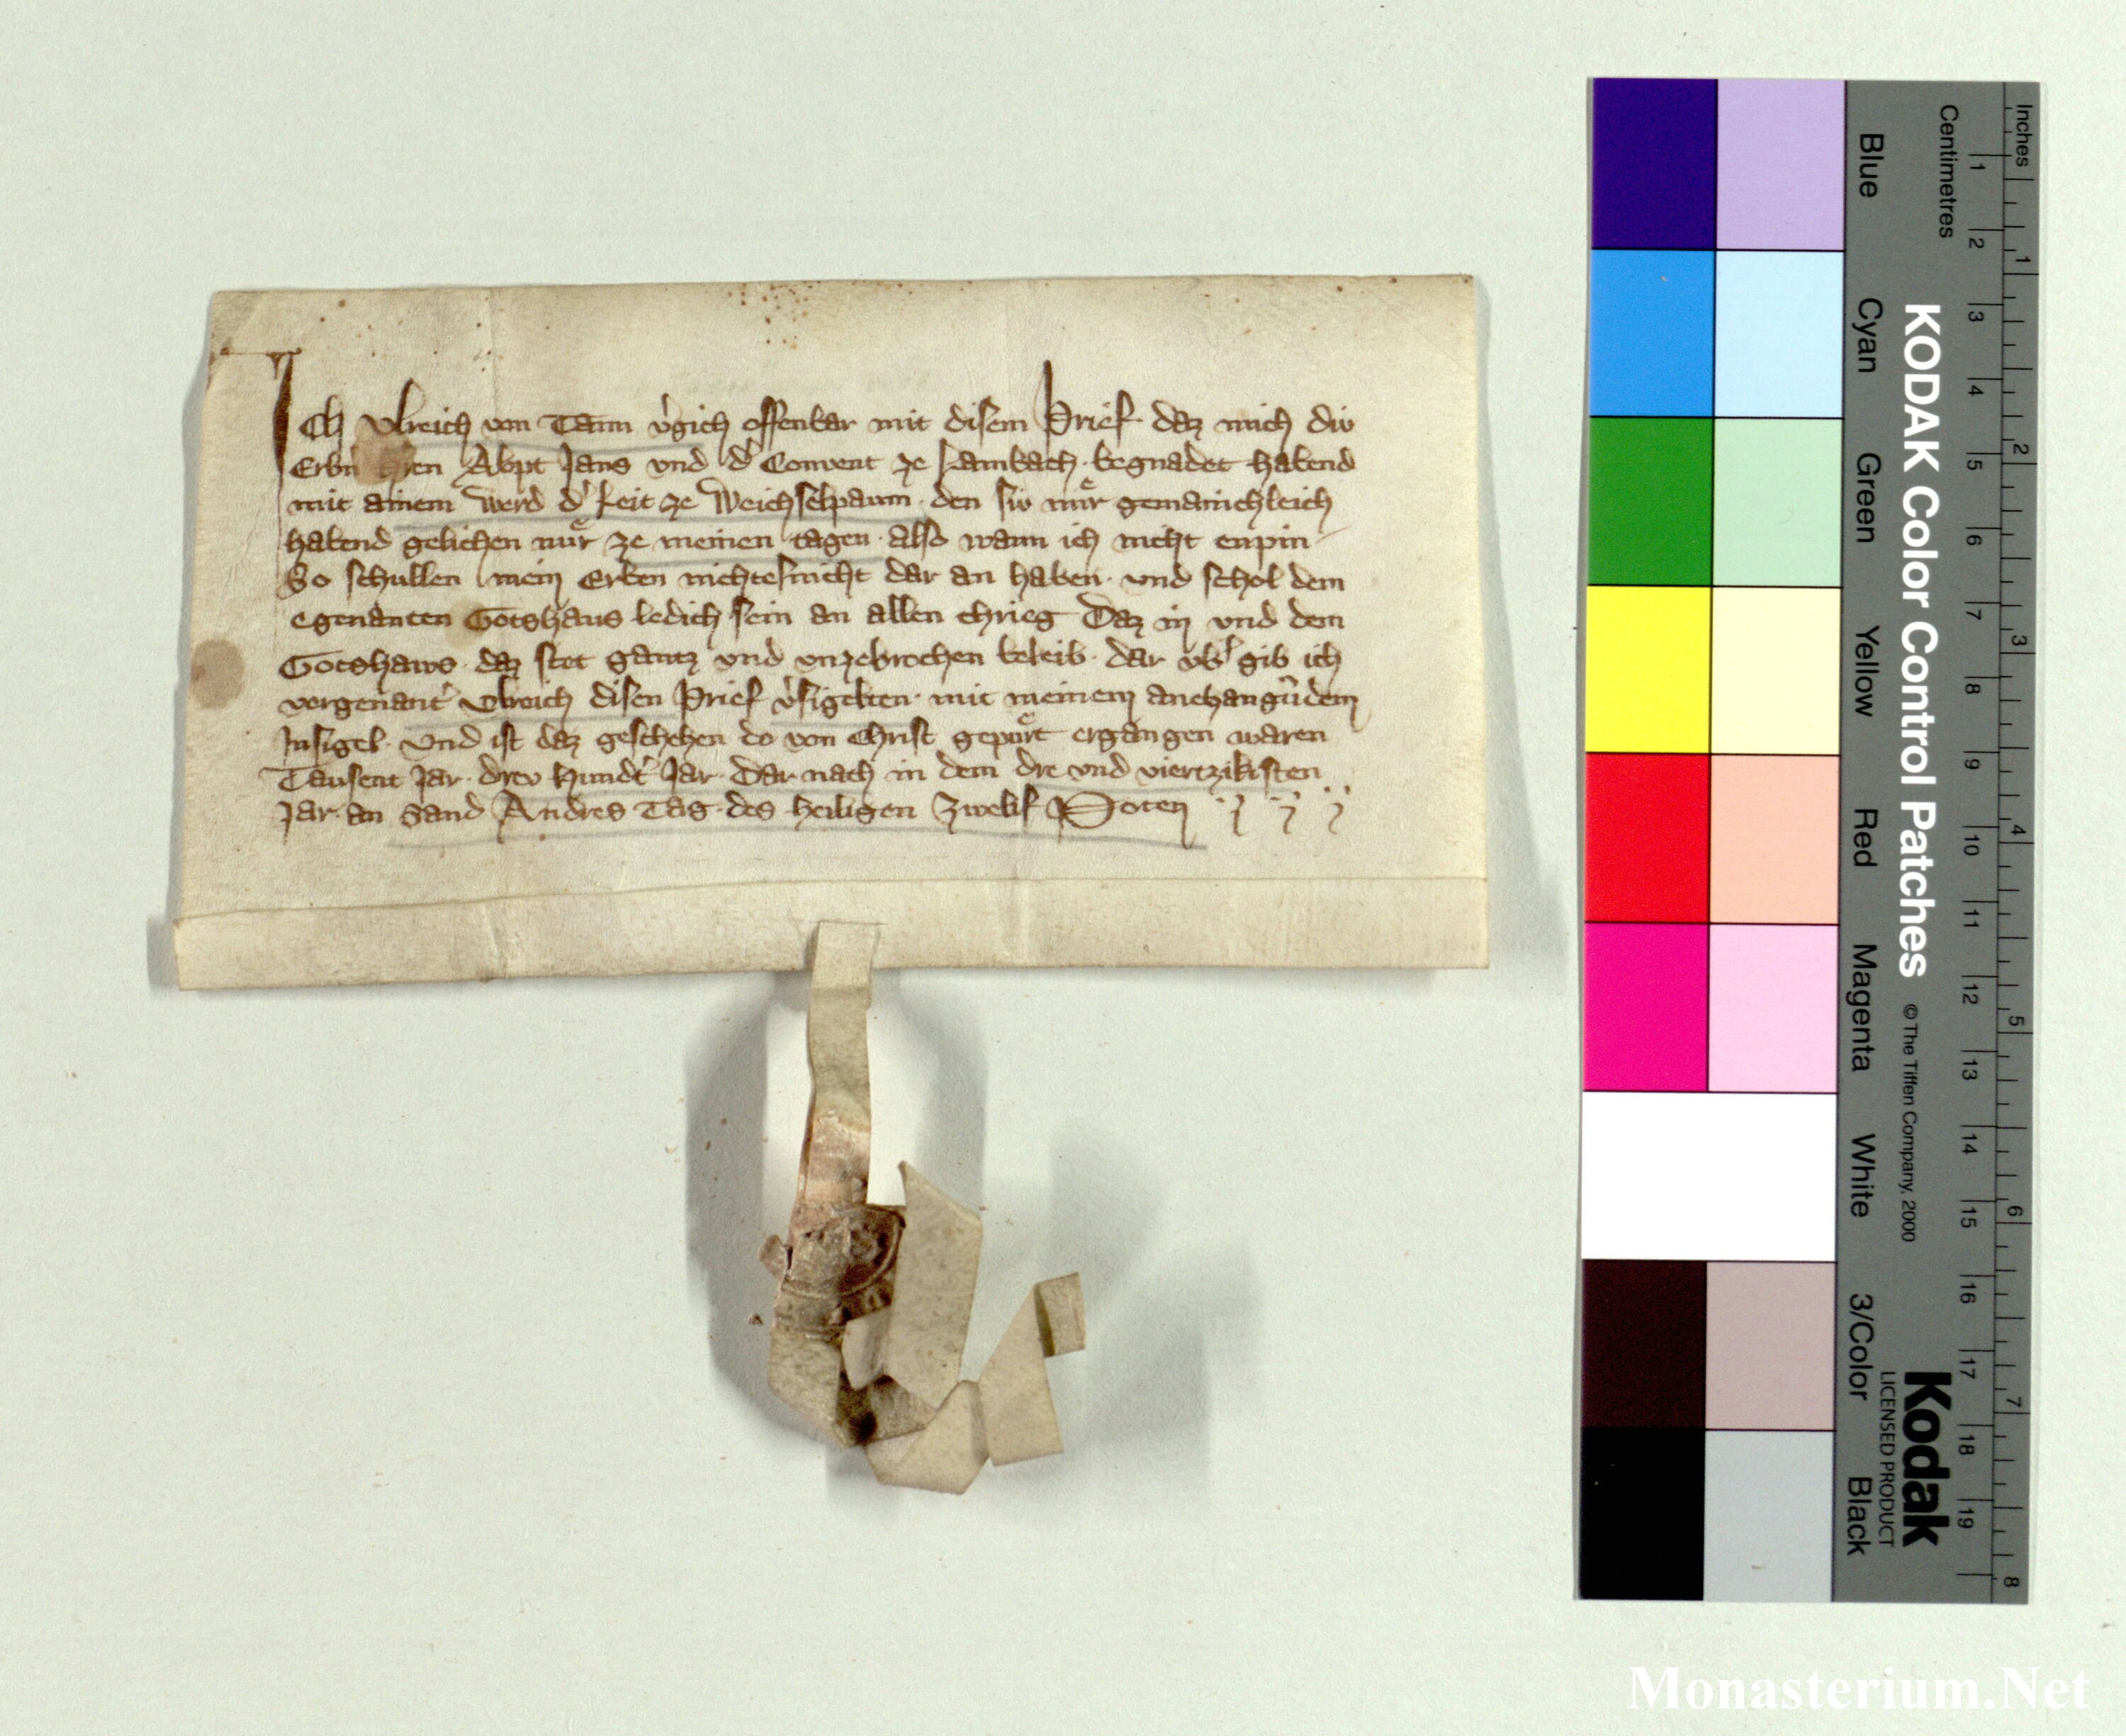 Ich Ulreich von Tann v'gich offenbar mit disem Prief daz mich div
Erbn h'ren Abpt Jans vnd d' Convent ze Lambach begnadet habend
mit ainem werd d' leit ze Weichselpaum den siv mir gemainchleich
habend gelichen nuͤr ze meinen tagen also wann ich nicht enpin
So schullen mein Erben nichtesnicht dar an haben vnd schol dem
egenanten Gotshaus ledich sein an allen chrieg Daz in vnd dem
Gotshaws daz stet gantz vnd vnzebrochen beleib dar vb' gib ich
vorgenant' Vlreich disen Prief v'sigelten mit meinem anehangundem
Insigel Vnd ist daz geschehen do von Christ gepuͤrt ergangen waren
Tausent Jar drev Hundt' Jar Dar nach in dem dre vnd viertzikisten
Jar an Sand Andres Tag des heiligen Zwelif Poten
Inches
Centimetres
1 2 3 4 5 6 7 8
1 2 3 4 5 6 7 8 9 10 11 12 13 14 15 16 17 18 19
KODAK Color Control Patches © The Tiffen Company, 2000
Kodak
LICENSED PRODUCT
Blue Cyan Green Yellow Red Magenta White 3/Color Black
Monasterium.Net